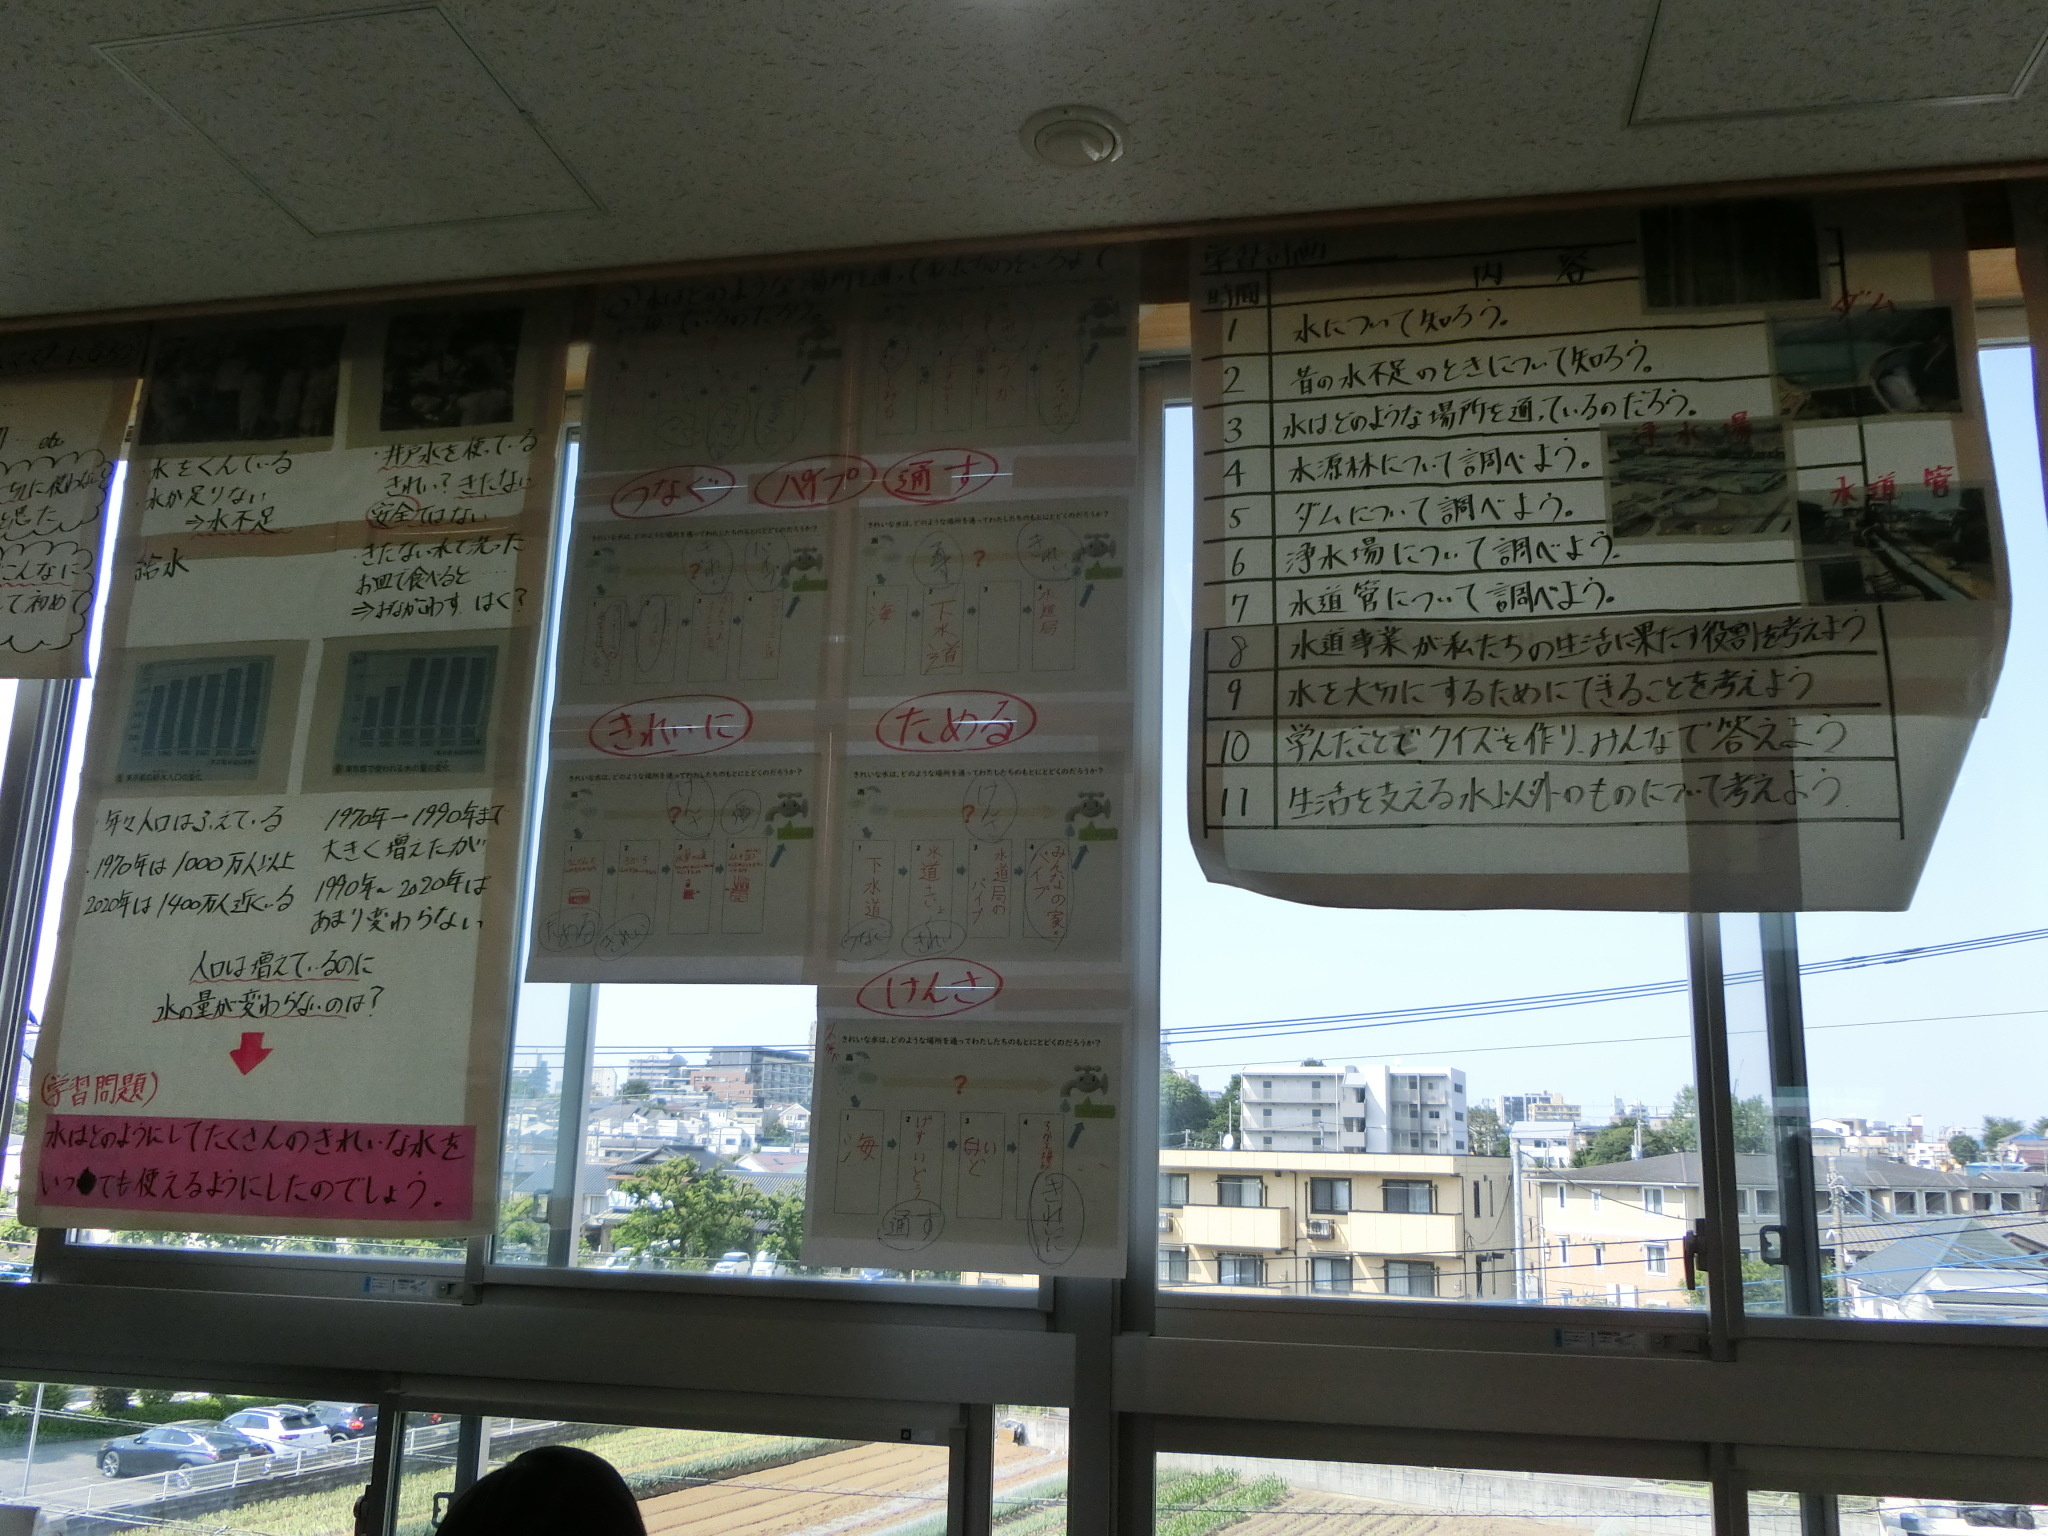 切に使わない
と思た
こんなに
て初めて
水をくんでいる
水が足りない
⇒水不足
給水
井戸水を使っている
きれい？きたない
安全ではない
きたない水で洗った
お皿で食べると…
⇒おなかこわす はく？
年々人口はふえている
1970年は1000万人以上
2020年は1400万人近くいる
1970年→1990年まで
大きく増えたが
1990年～2020年は
あまり変わらない
人口は増えているのに
水の量が変わらないのは？
(学習問題)
水はどのようにしてたくさんのきれいな水を
いつでも使えるようにしたのでしょう。
水はどのような場所を通ってわたしたちのところまで
つなぐ
パイプ
通す
きれいな水は、どのような場所を通ってわたしたちのもとにとどくのだろうか？
?
1 2 3 4
きれいな水は、どのような場所を通ってわたしたちのもとにとどくのだろうか？
きれい
?
海
下水道
水道局
きれいに
ためる
きれいな水は、どのような場所を通ってわたしたちのもとにとどくのだろうか？
けんさ
?
1 2 3 4
ためる
きれい
きれいな水は、どのような場所を通ってわたしたちのもとにとどくのだろうか？
けんさ
?
1 2 3 4
下水道
水道局のパイプ
みんなの家
パイプ
つなぐ
きれい
けんさ
きれいな水は、どのような場所を通ってわたしたちのもとにとどくのだろうか？
?
1 2 3 4
海
げすいどう
通す
きれいに
学習計画
時間 内容
1 水について知ろう。
2 昔の水不足のときについて知ろう。
3 水はどのような場所を通っているのだろう。
4 水源林について調べよう。
5 ダムについて調べよう。
6 浄水場について調べよう。
7 水道管について調べよう。
8 水道事業が私たちの生活に果たす役割を考えよう
9 水を大切にするためにできることを考えよう
10 学んだことでクイズを作り、みんなで答えよう
11 生活を支える水以外のものについて考えよう
ダム
浄水場
水道管